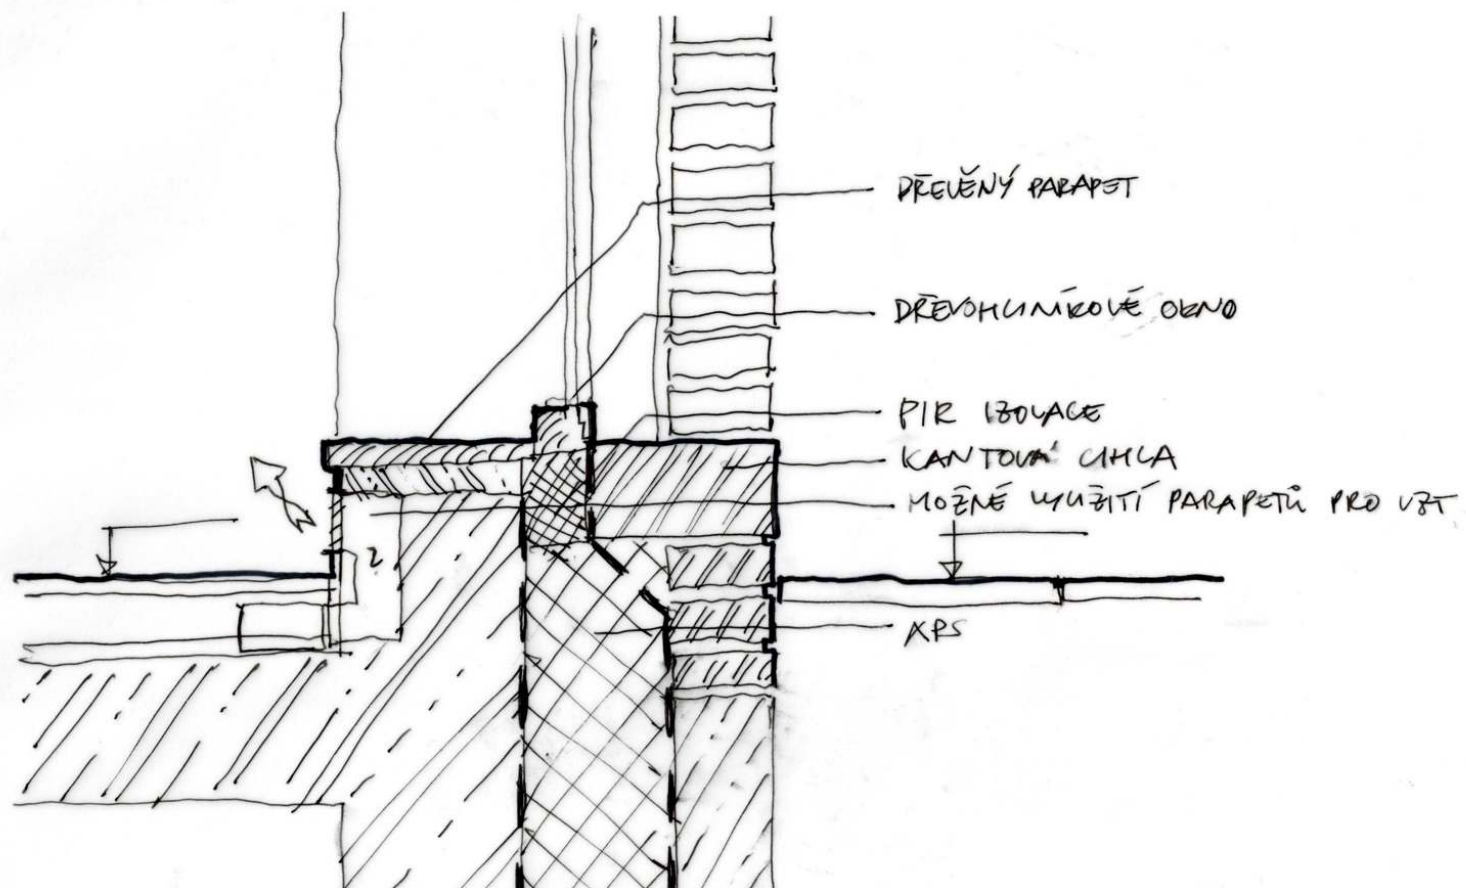 DŘEVĚNÝ PARAPET
DŘEVOHLINÍKOVÉ OKNO
PIR IZOLACE
KANTOVÁ CIHLA
MOŽNÉ VYUŽITÍ PARAPETŮ PRO VZT
?
XPS